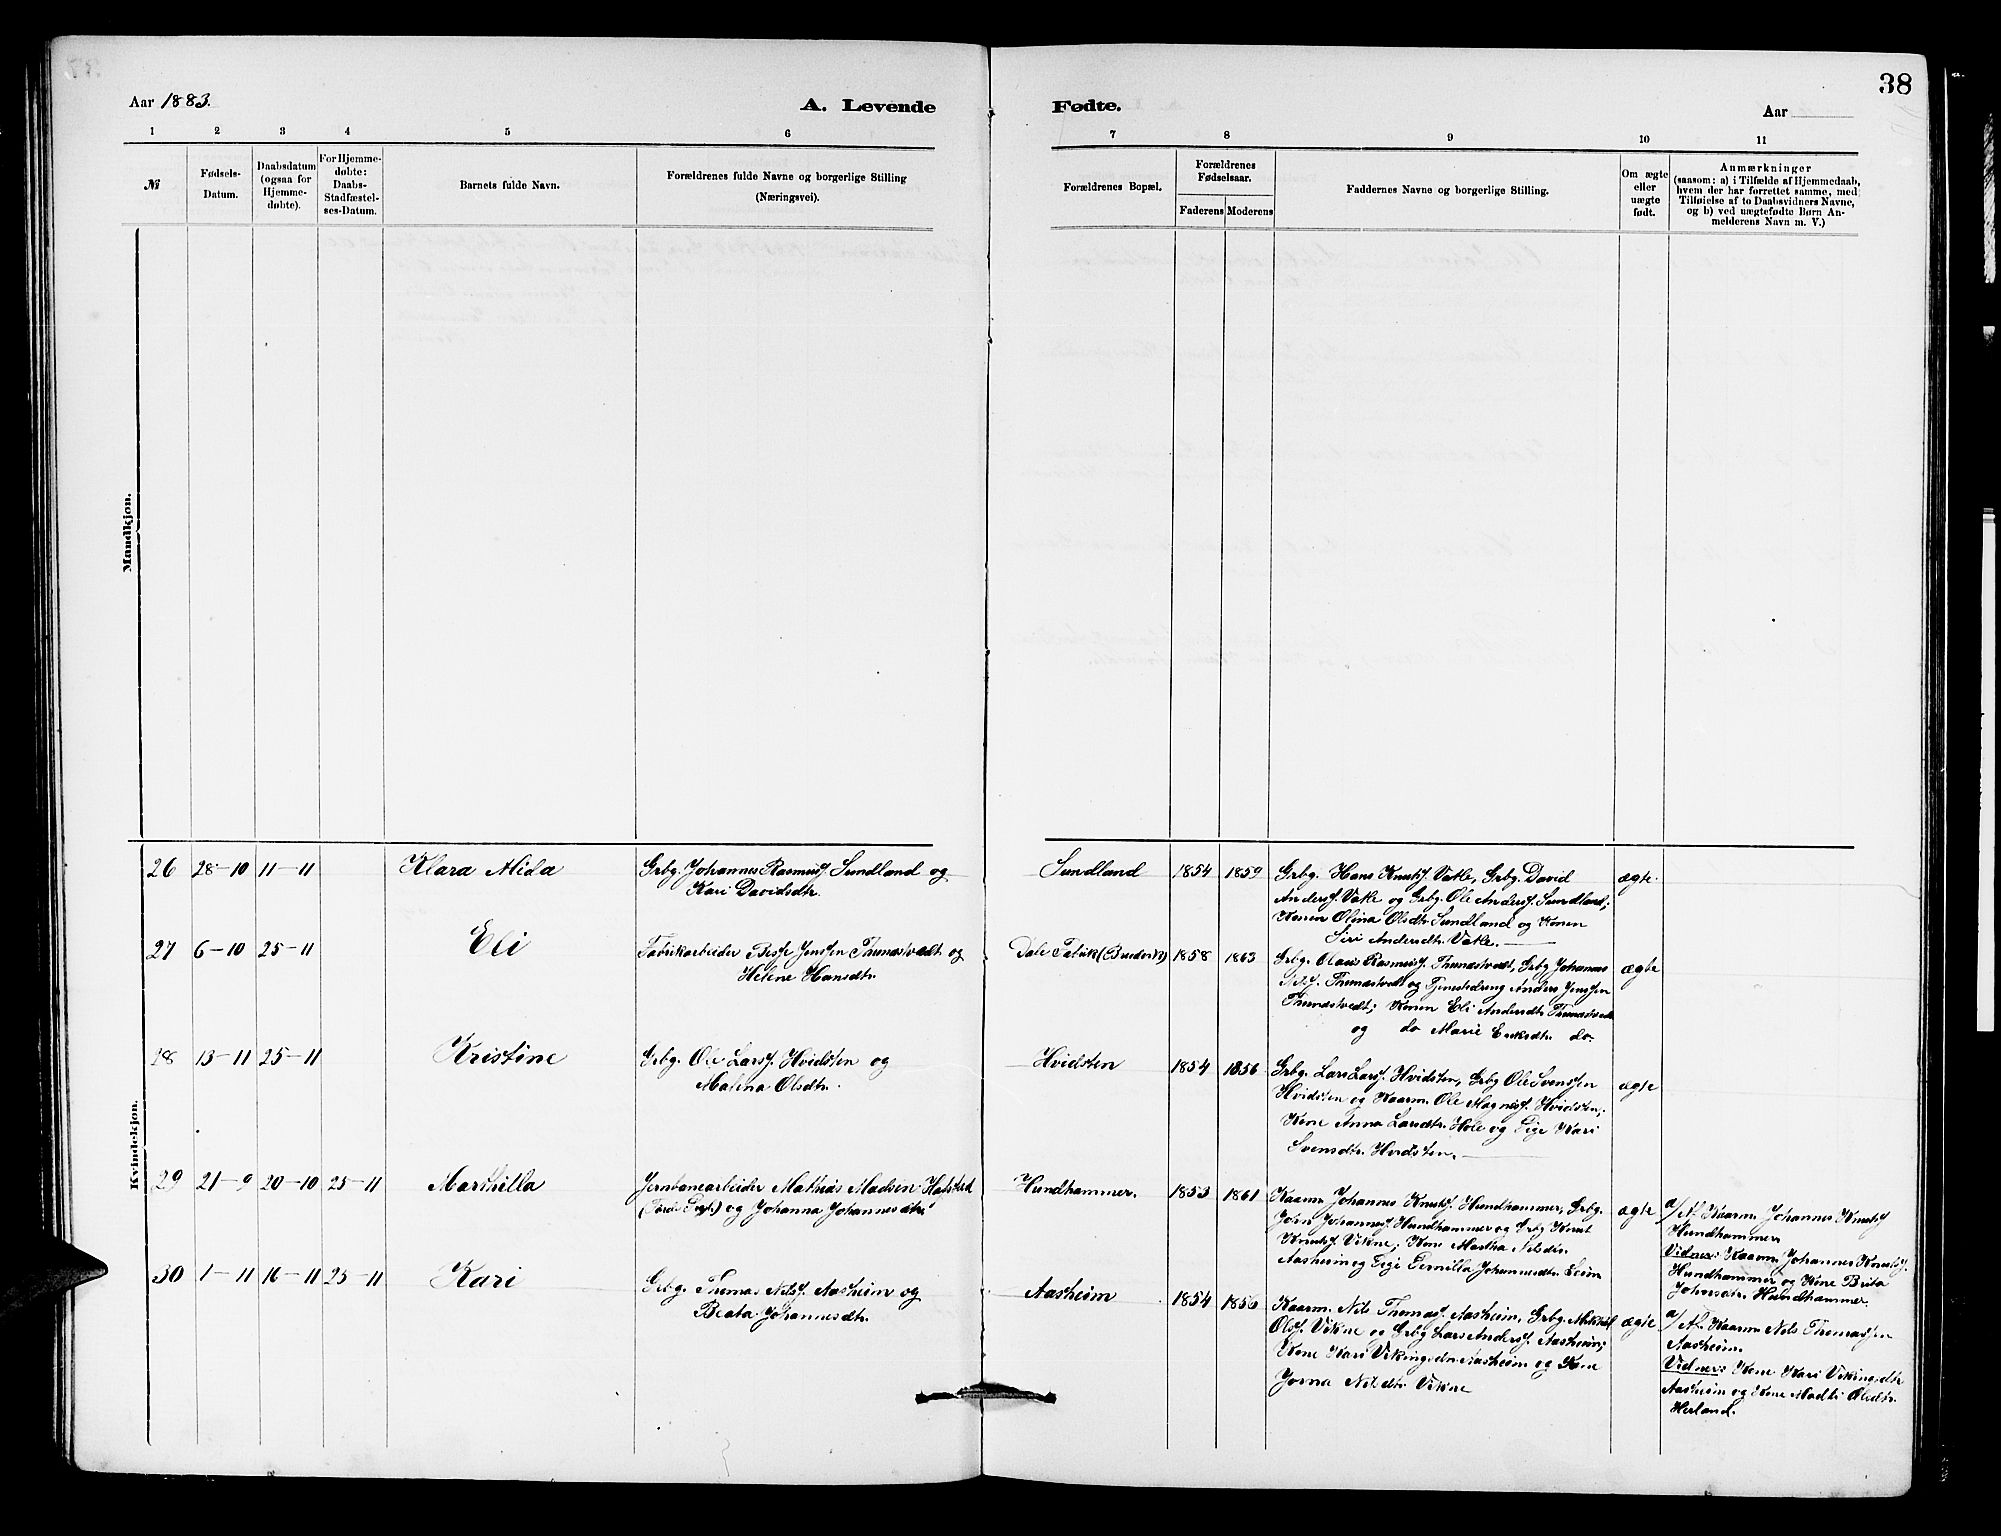 38
Aar 1883.
A. Levende
Fødte.
Aar
1 2 3 4 5 6 7 8 9 10 11
№
Fødsels-
Datum.
Daabsdatum
(ogsaa for
Hjemme-
døbte).
For Hjemme-
døbte:
Daabs-
Stadfæstel-
ses-Datum.
Barnets fulde Navn.
Forældrenes fulde Navne og borgerlige Stilling
(Næringsvei).
Forældrenes Bopæl.
Forældrenes
Fødselsaar.
Faderens Moderens
Faddernes Navne og borgerlige Stilling.
Om ægte
eller
uægte
født.
Anmærkninger
(saasom: a) i Tilfælde af Hjemmedaab,
hvem der har forrettet samme, med
Tilføielse af to Daabsvidners Navne,
og b) ved uægtefødte Børn An-
melderens Navn m. V.)
Mandkjøn.
Kvindekjøn.
26 28-10 11-11 Klara Alida
Grbg. Johannes Rasmusf. Sundland og
Kari Davidsdtr.
Sundland 1854 1859
Grbg. Hans Knutsf. Vatle, Grbg. David
Andersf. Vatle og Grbg. Ole Andersf. Sundland;
Konen Olina Olsdtr. Sundland og Konen
Siri Andersdtr. Vatle.
ægte.
27 6-10 25-11 Eli
Fabrikarbeider Jenssen Thunestvedt og
Helene Hansdtr.
Dale Fabrik (Bruderik) 1858 1863
Grbg. Olaus Rasmusf. Thunestvedt, Grbg Johannes
Nilsf. Thunestvedt og Anders Jenssen
Thunestvedt; Konen Eli Andersdtr. Thunestvedt
og do Marie Eriksdtr. do.
ægte
28 13-11 25-11 Kristine
Grbg. Ole Larsf. Hvidsten og
Malena Olsdtr.
Hvidsten 1854 1856
Grbg. Lars Larsf. Hvidsten, Grbg Ole Svenssen
Hvidsten og Kaarm. Ole Magnesf. Hvidsten;
Kone Anna Larsdtr. Hole og Pige Kari
Svensdtr. Hvidsten.
ægte
29 21-9 20-10 25-11 Marthilla
Jernbanearbeider Mathias Madsen Halstad
og Johanna Johannesdtr.
Hundhammer. 1853 1861
Kaarm Johannes Knutsf. Hundhammer, Grbg.
John Johannesf. Hundhammer og Grbg Knut
Knutsf. Vikne; Kone Martha Nilsdtr.
Aasheim og Pige Pernilla Johannesdtr. Leiren
ægte
a/ Af Kaarm Johannes Knutsf
Hundhammer.
Vidner: Kaarm Johannes Knutsf.
Hundhammer og Kone Brita
Johnsdtr. Hundhammer.
30 1-11 16-11 25-11 Kari
Grbg. Thomas Nilsf. Aasheim og
Beata Johannesdtr.
Aasheim 1854 1856
Kaarm. Nils Thomasf. Aasheim, Grbg. Mikkal
Olsf. Vikne og Grbg Lars Andersf. Aasheim;
Kone Kari Vikingsdtr. Aasheim og Kone
Jorna Nilsdtr. Vikne
ægte
a/ Af Kaarm Nils Thomassen
Aasheim.
Vidner: Kone Kari Vikingsdtr
Aasheim og Kone Madli Olsdtr.
Herland.